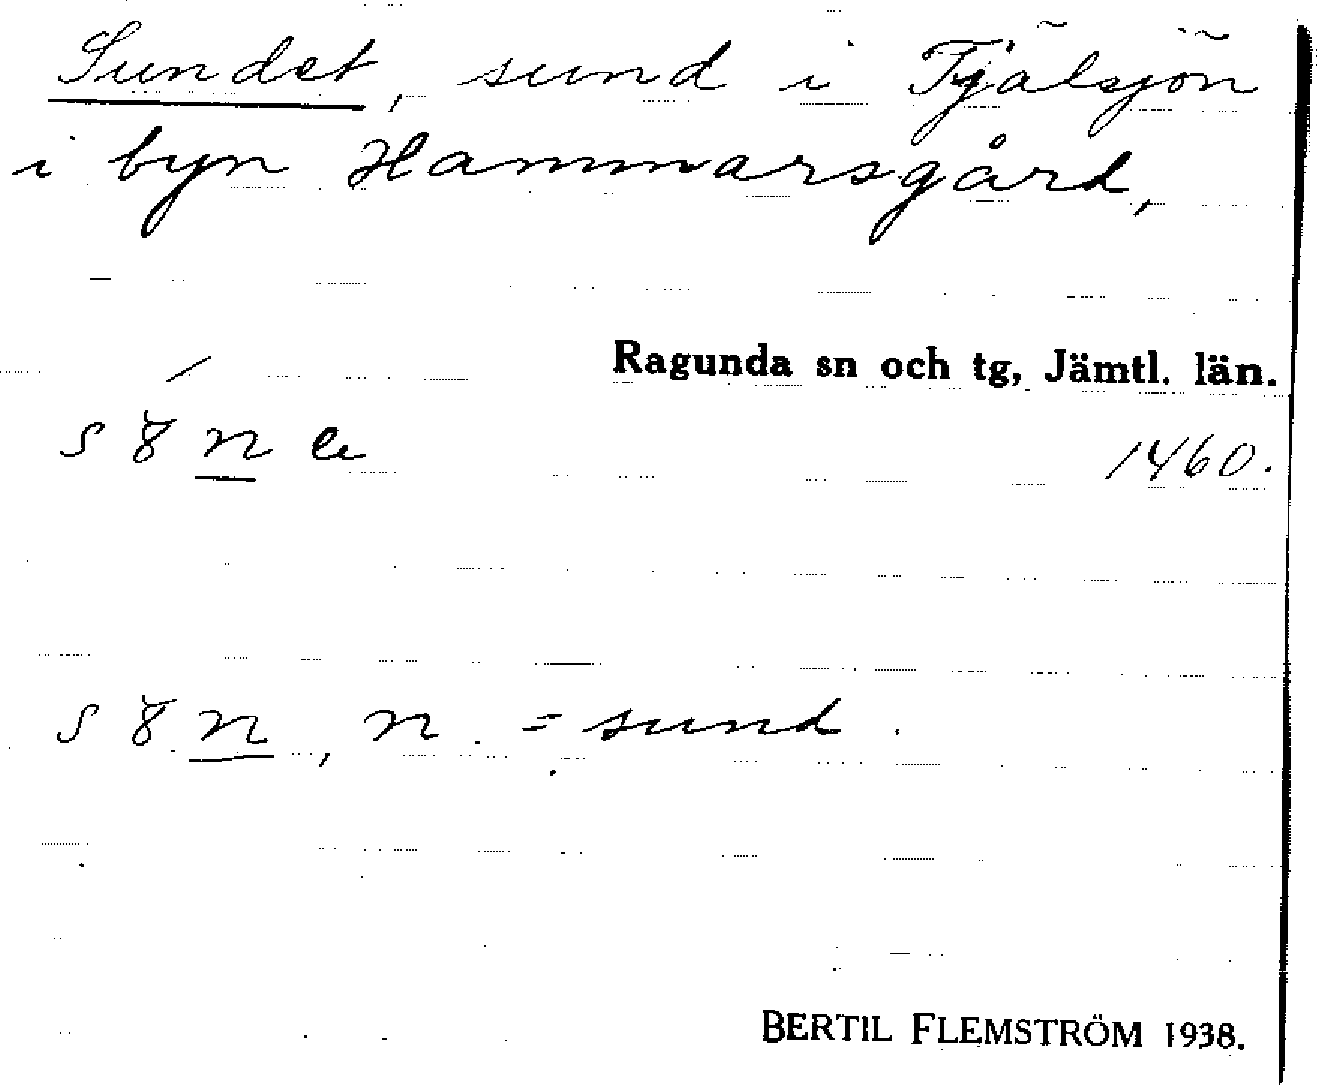 Sundet, sund i Fjälsjön
i byn Hammarsgård,
Ragunda sn och tg, Jämtl. län.
s 8 n e
1460.
s 8 n, n. = sund.
BERTIL FLEMSTRÖM 1938.